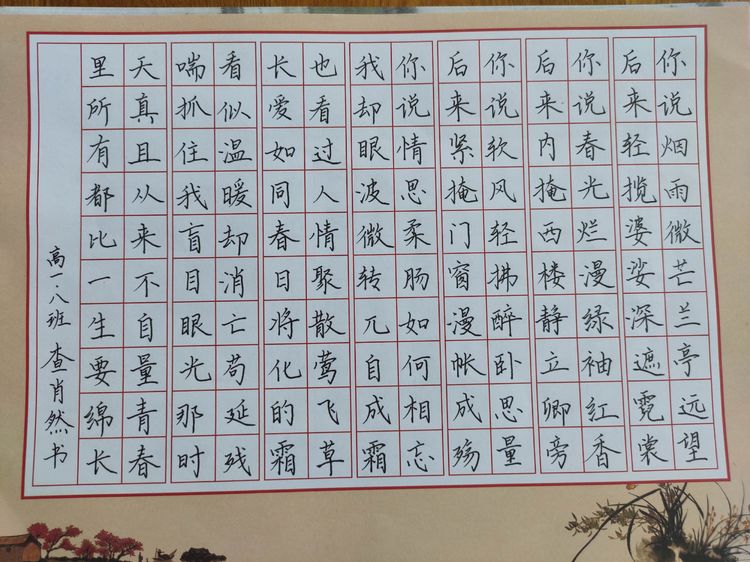 你说烟雨微芒兰亭远望
后来轻揽婆娑深遮霓裳
你说春光烂漫绿袖红香
后来内掩西楼静立卿旁
你说软风轻拂醉卧思量
后来紧掩门窗漫帐成殇
你说情思柔肠如何相忘
我却眼波微转兀自成霜
也看过人情聚散莺飞草
长爱如同春日将化的霜
看似温暖却消亡苟延残
喘抓住我盲目眼光那时
天真且从来不自量青春
里所有都比一生要绵长
高一·八班 查肖然书